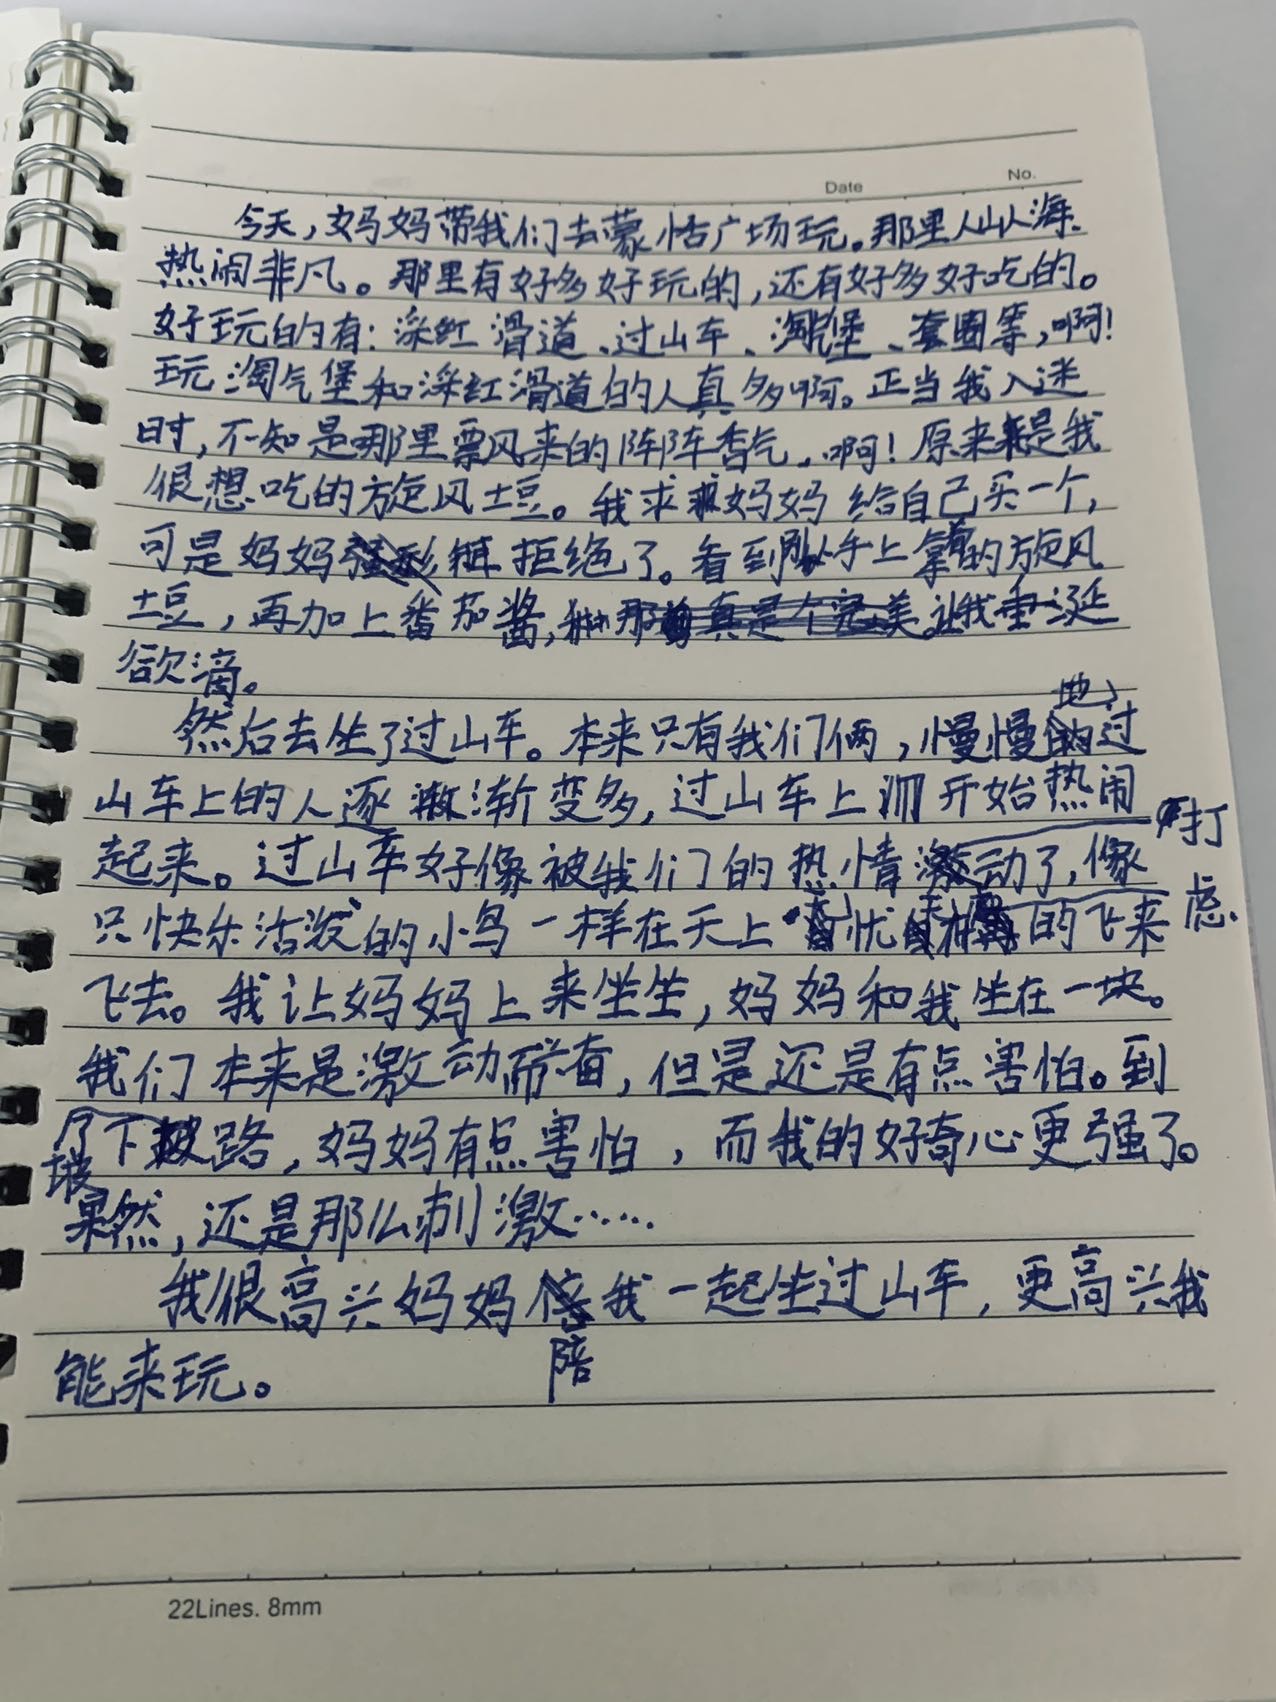 Date No.
今天，妈妈带我们去蒙恬广场玩。那里人山人海、
热闹非凡。那里有好多好玩的，还有好多好吃的。
好玩的有：深红滑道、过山车、淘气堡、套圈等，啊！
玩淘气堡和深红滑道的人真多啊。正当我入迷
时，不知是那里票风来的阵阵香气。啊！原来是我
很想吃的旋风土豆。我求妈妈给自己买一个，
可是妈妈拒绝了。看到别人手上拿的旋风
土豆，再加上番茄酱，让我垂涎
欲滴。
然后去坐了过山车。本来只有我们俩，慢慢地，过
山车上的人逐渐变多，过山车上开始热闹
起来。过山车好像被我们的热情打动了，像
只快乐活泼的小鸟一样在天上无忧无虑的飞来
飞去。我让妈妈上来坐坐，妈妈和我坐在一块。
我们本来是激动而，但是还是有点害怕。到
了下坡路，妈妈有点害怕，而我的好奇心更强了。
果然，还是那么刺激……
我很高兴妈妈陪我一起坐过山车，更高兴我
能来玩。
22Lines. 8mm